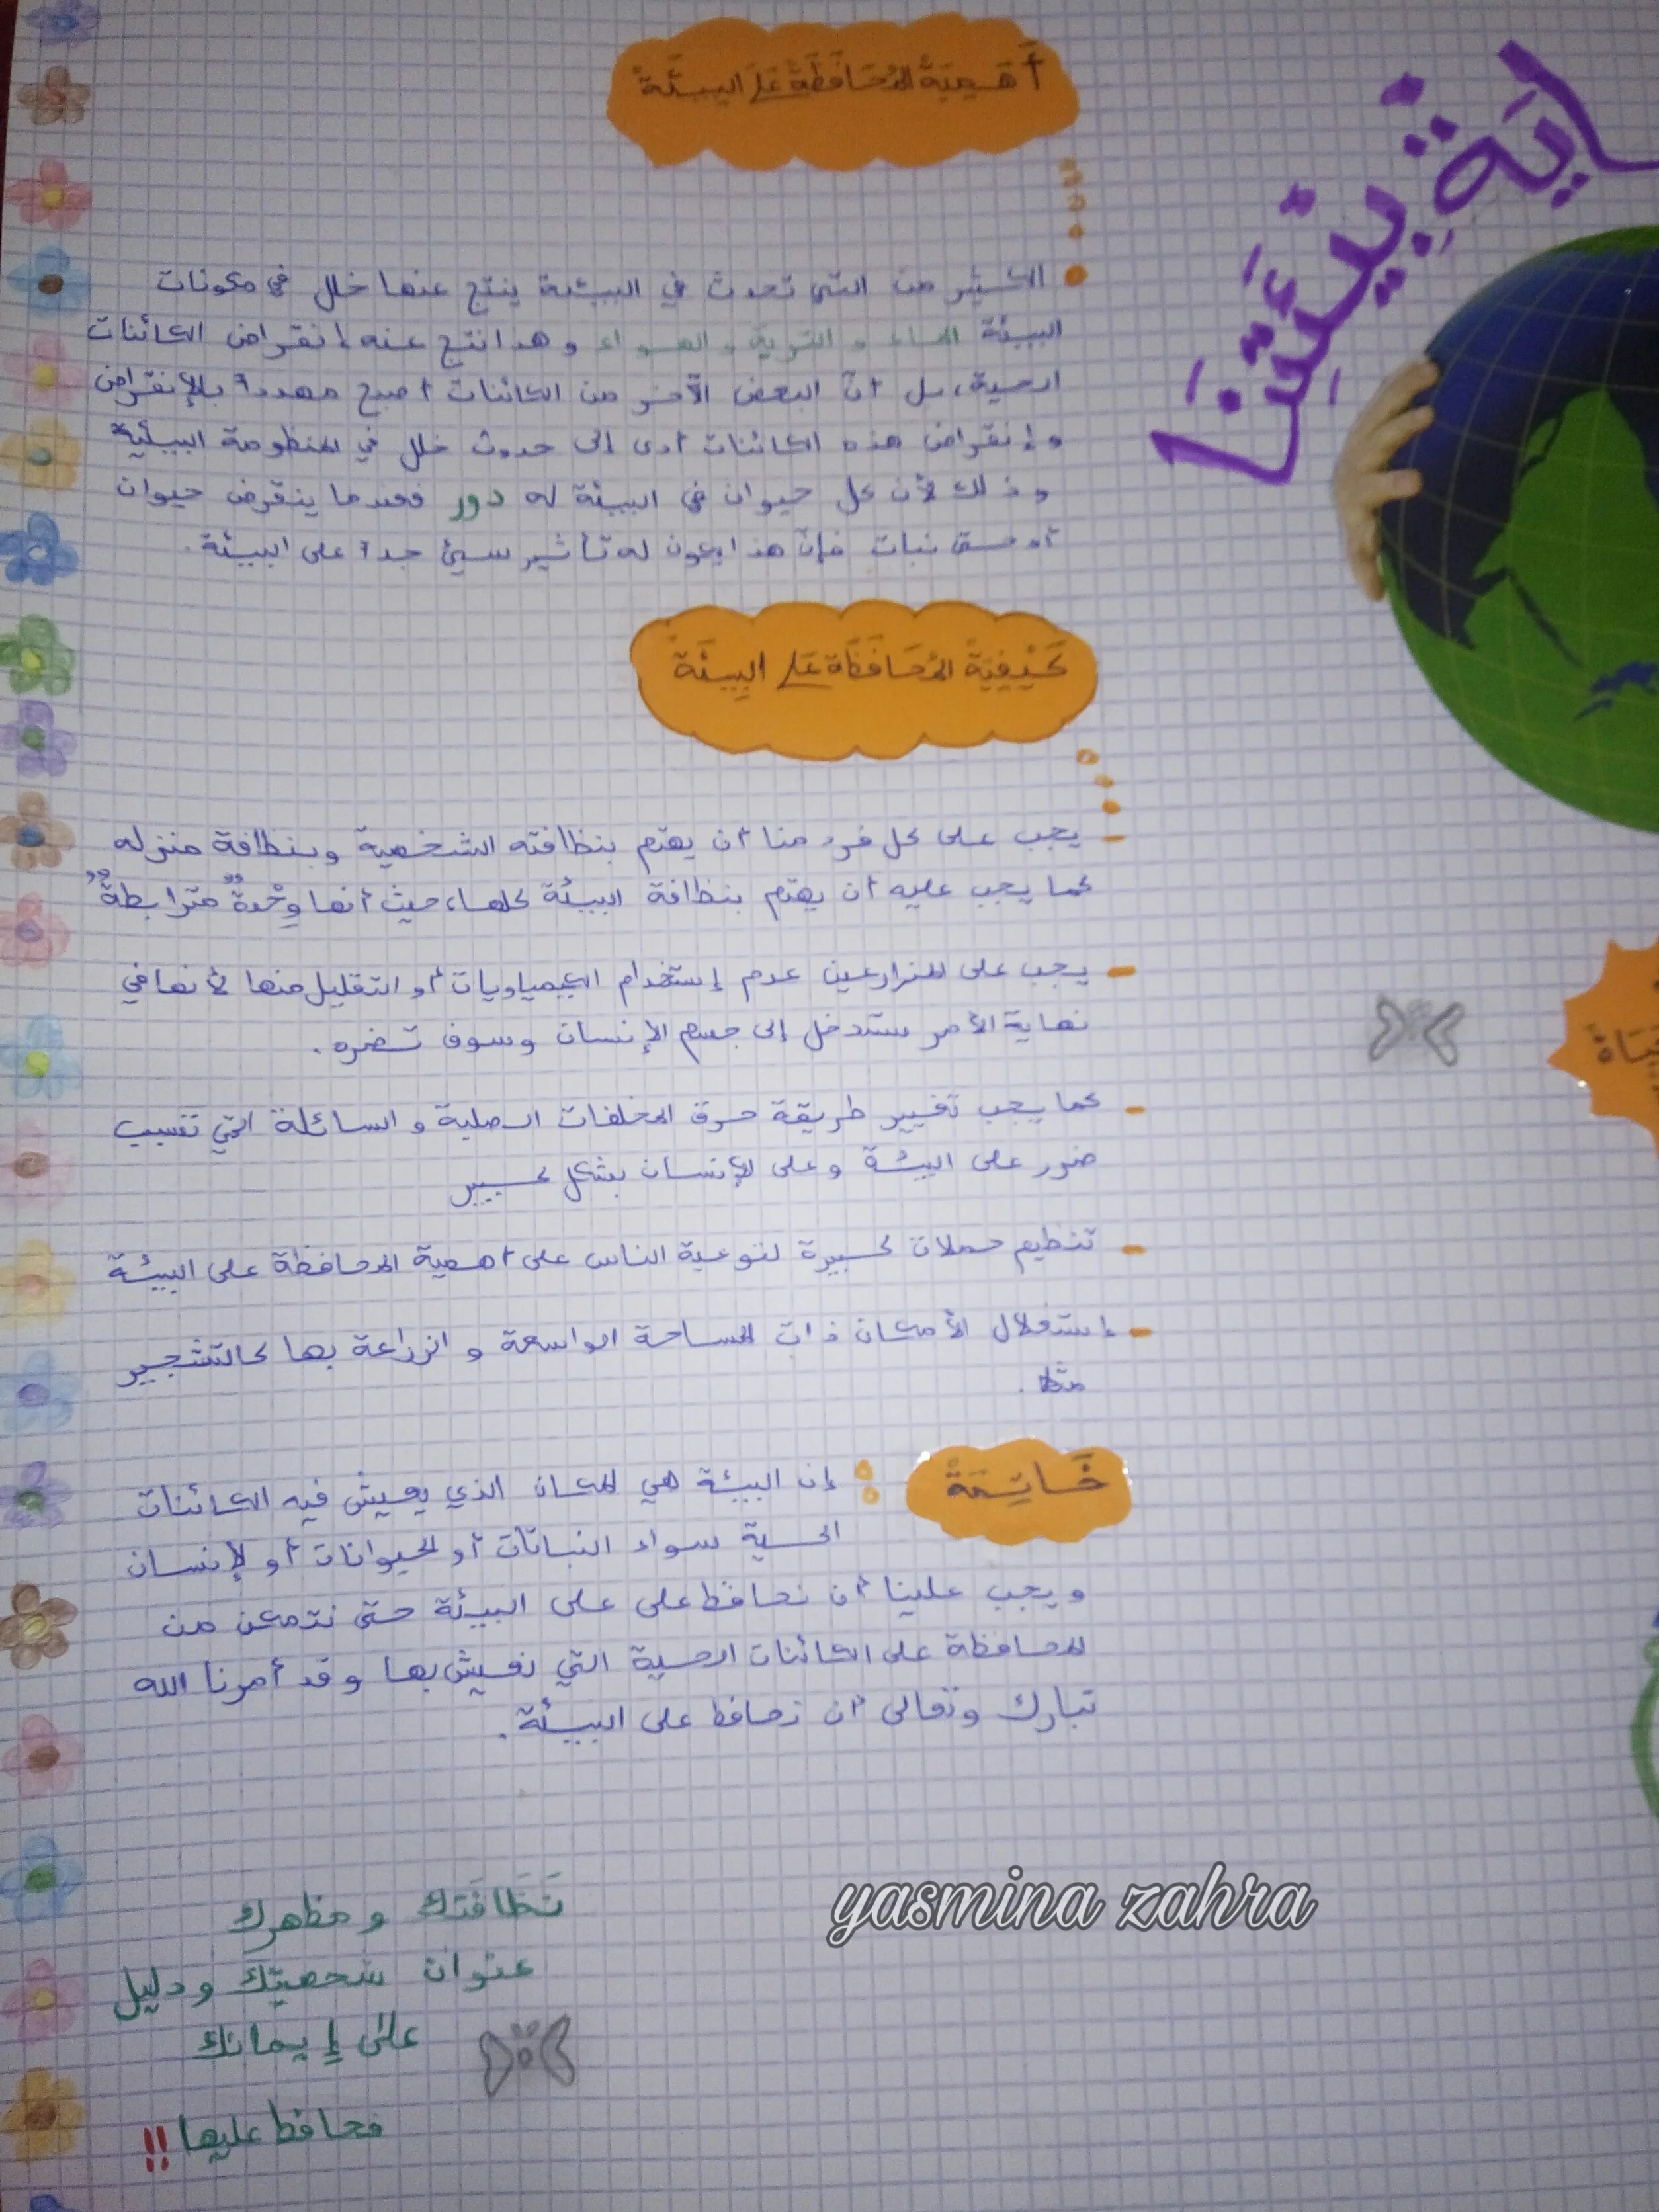 أَهَمِيَةُ المُحَافَظَةُ عَلَى البِيئَةُ
اية بيئتنا
الكثير من التي تحدث في البيئة ينتج عنها خلل في مكونات
البيئة الماء و التربة و الهواء و هذا نتج عنه إنقراض الكائنات
الحية، بل أنّ البعض الآخر من الكائنات أصبح مهدداً بالإنقراض
و إنقراض هذه الكائنات أدى إلى حدوث خلل في المنظومة البيئية
و ذلك لأن كل حيوان في البيئة له دور فعندما ينقرض حيوان
أو حتى نبات فإنّ هذا يكون له تأثير سيئ جداً على البيئة.
كَيْفِيَةُ المُحَافَظَة عَلى البِيئَةُ
- يجب على كل فرد منا أن يهتم بنظافته الشخصية وبنظافة منزله
كما يجب عليه أن يهتم بنظافة البيئة كلها، حيث أنها وِحْدةٌ مترابطةٌ
- يجب على المزارعين عدم إستخدام الكيمياويات أو التقليل منها لأنها في
نهاية الأمر ستدخل إلى جسم الإنسان وسوف تضره.
- كما يجب تغيير طريقة حرق المخلفات الصلبة و السائلة التي تتسبب
ضرر على البيئة و على الإنسان بشكل كبيير
- تنظيم حملات كبيرة لتوعية الناس على أهمية المحافظة على البيئة
- إستغلال الأمكان ذات المساحة الواسعة و الزراعة بها كالتشجيير
مثلا.
خَاتِمَةْ : إن البيئة هي المكان الذي يعيش فيه الكائنات
الحية سواء النباتات أو الحيوانات أو الإنسان
و يجب علينا أن نحافظ على على البيئة حتى نتمكن من
المحافظة على الكائنات الحية التي نعيش بها و قد أمرنا الله
تبارك وتعالى أن نحافظ على البيئة.
yasmina zahra
نَظَافَتك و مظهرك
عنوان شخصيتك و دليل
على إيمانك
فحافظ عليها !!